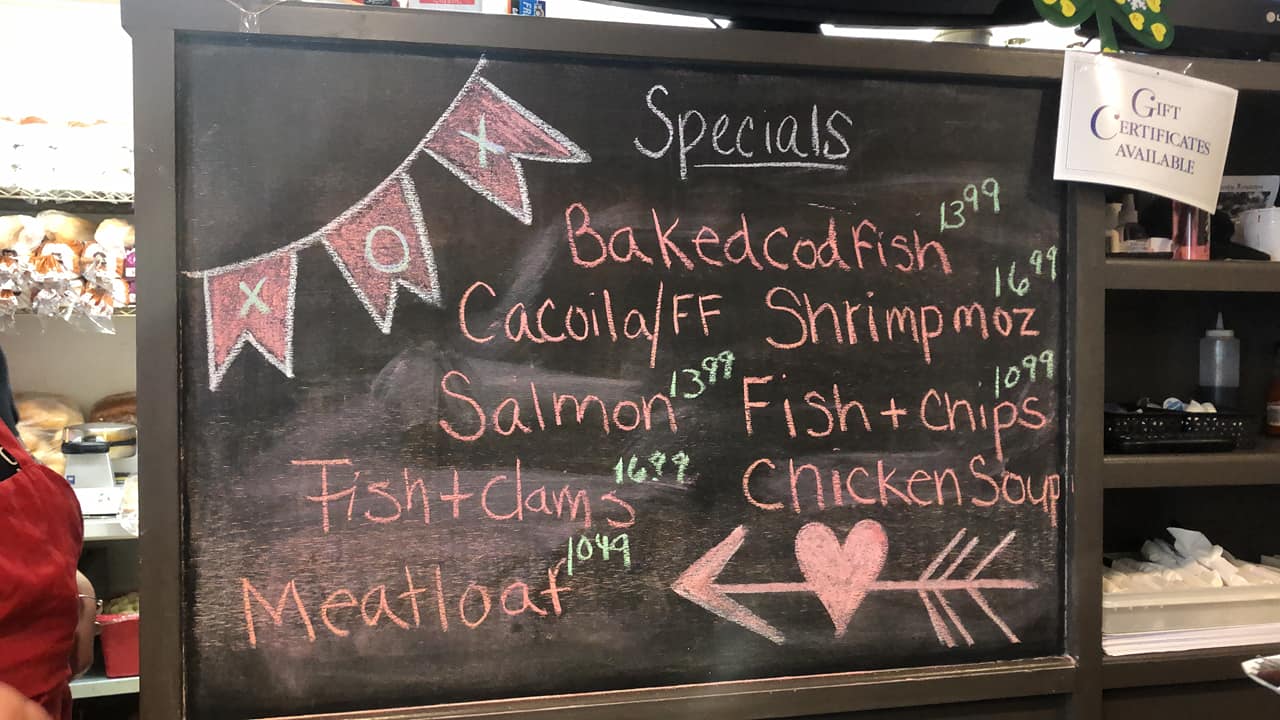 X O X
Specials
Baked codfish 13 99
Cacoila/FF Shrimp moz 16 99
Salmon 13 99 Fish + chips 10 99
Fish + clams 16.99 Chicken Soup
Meatloaf 10 49
GIFT
CERTIFICATES
AVAILABLE